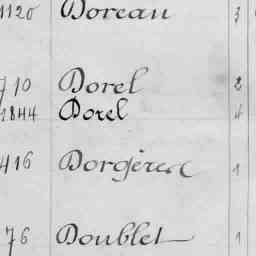 1120 Doreau 3
710 Dorel 2
1844 Dorel 4
416 1
76 Doublet 1